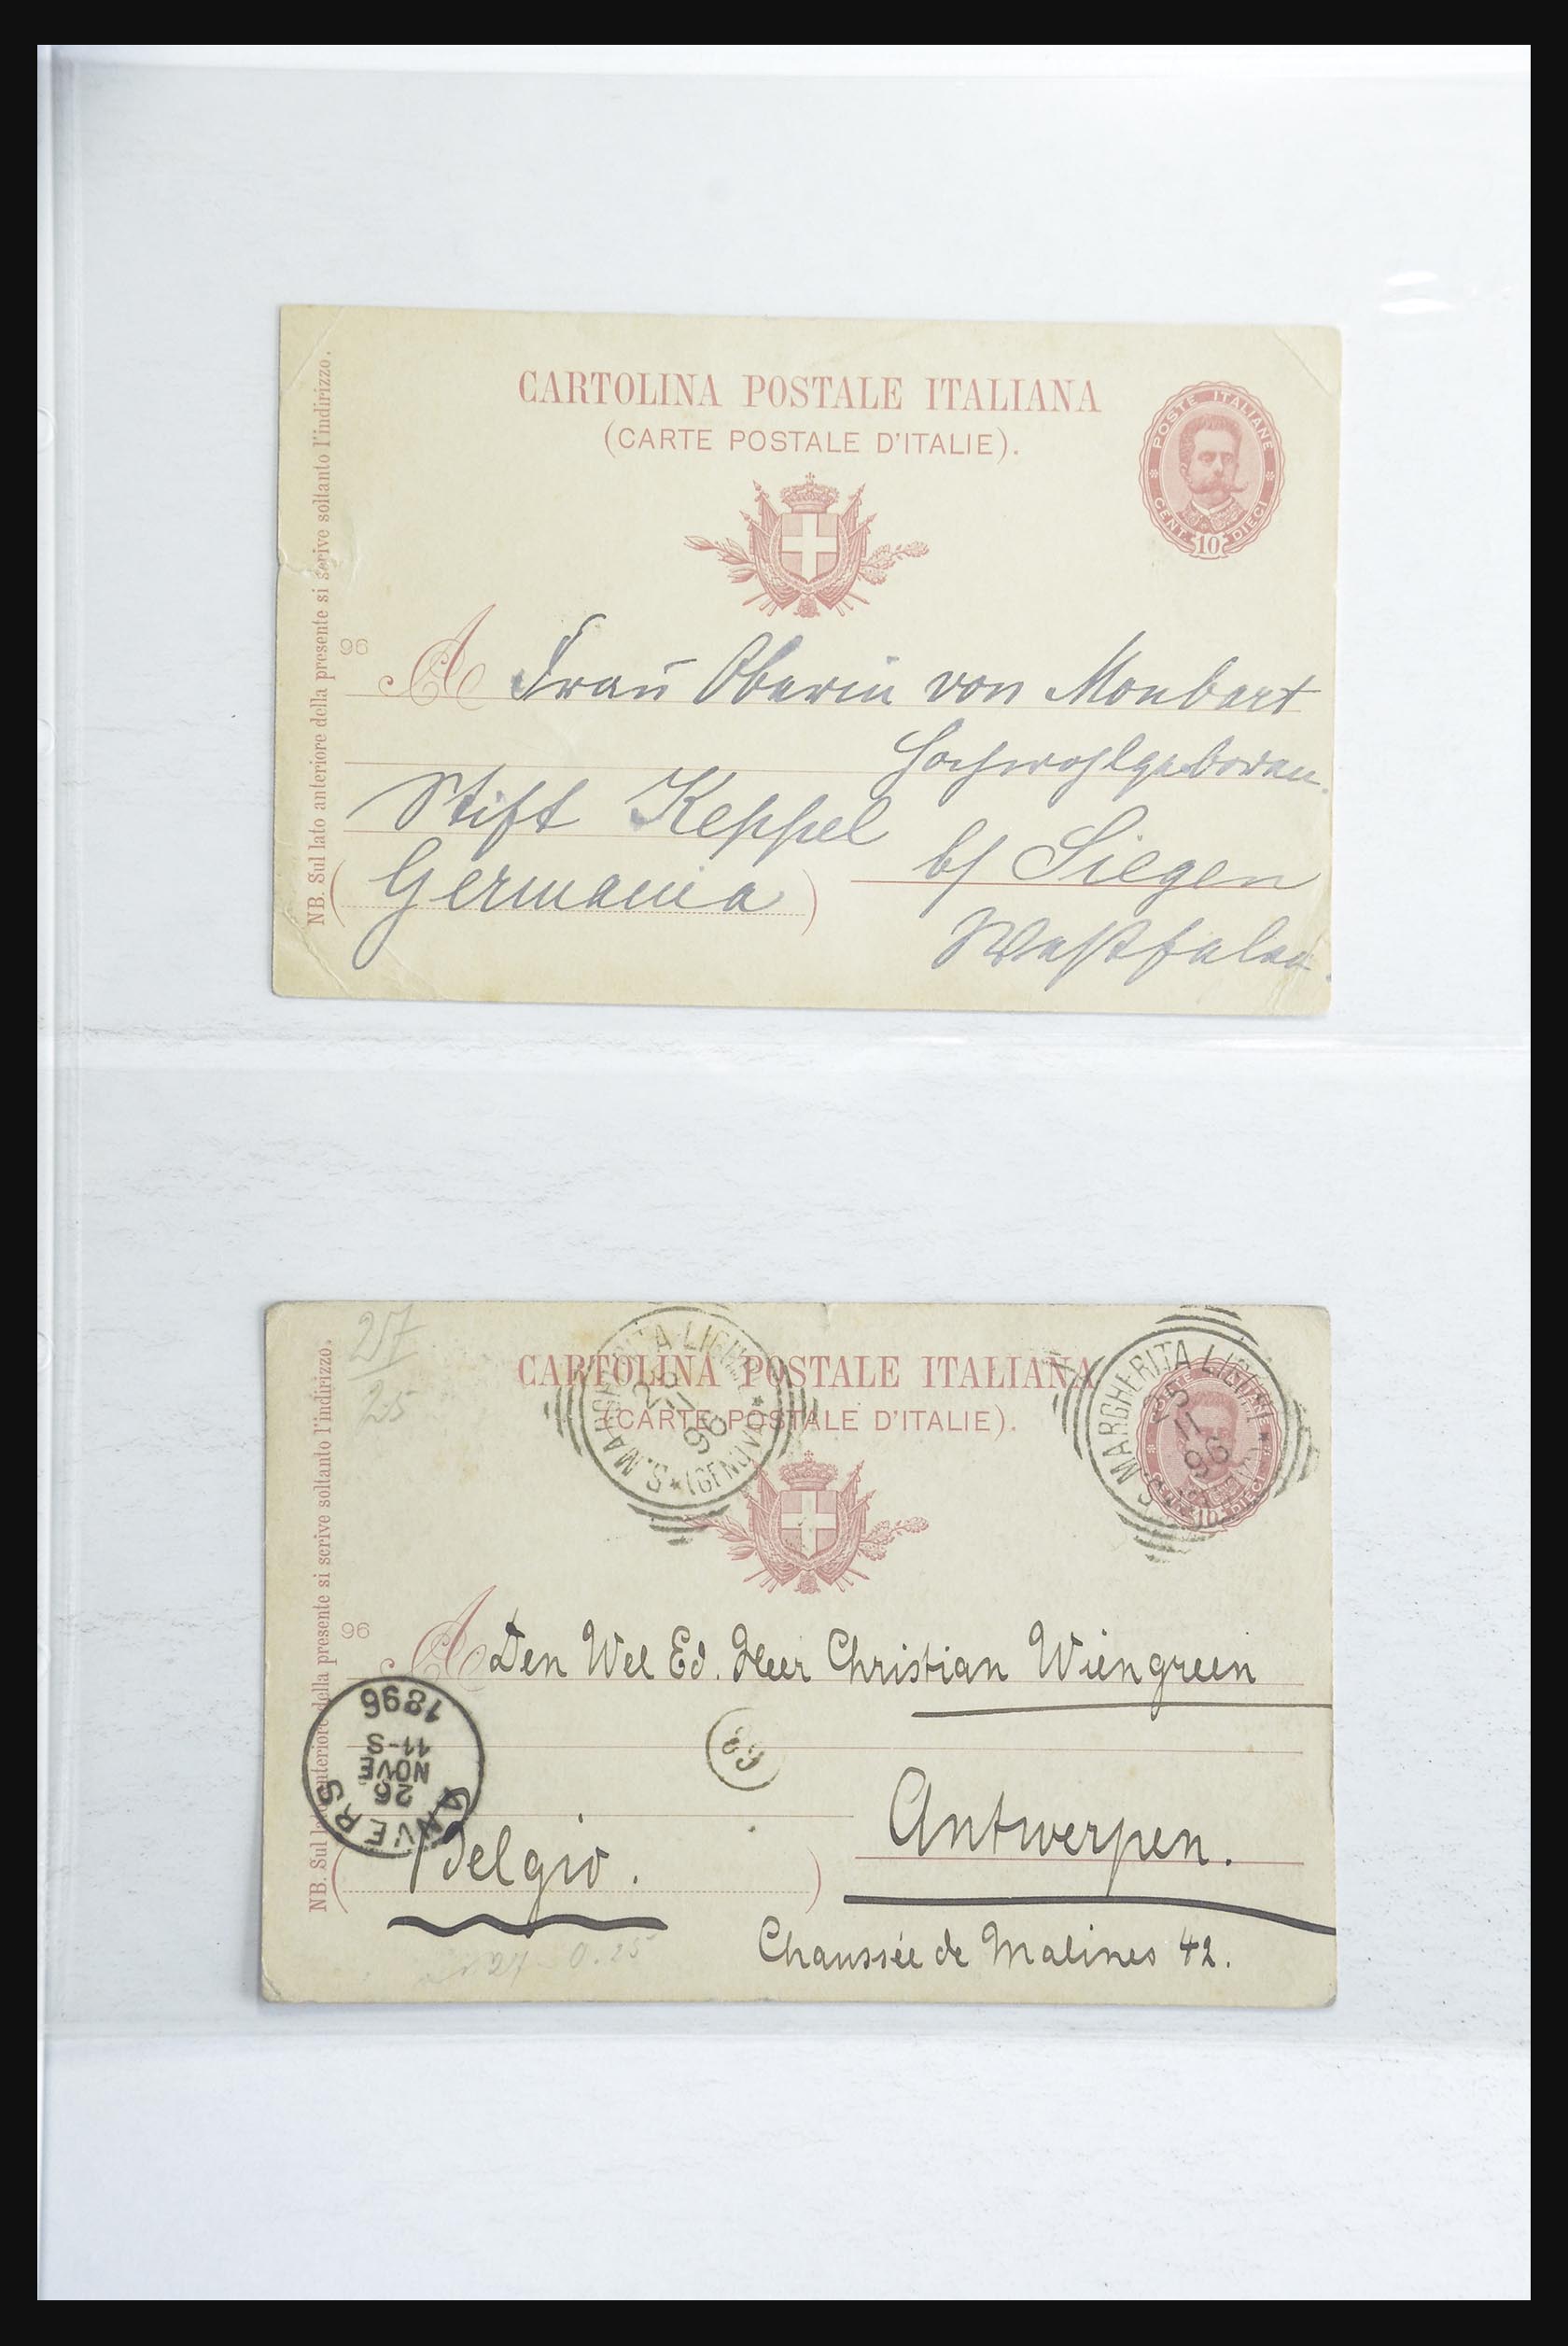 CARTOLINA POSTALE ITALIANA
(CARTE POSTALE D'ITALIE).
POSTE ITALIANE
CENT. 10 DIECI
NB. Sul lato anteriore della presente si scrive soltanto l'indirizzo.
96
A Frau Oberin von Monbart
Hochwohlgeboren.
Stift Keppel
b/ Siegen
(Germania)
Westfalen.
257
25
CARTOLINA POSTALE ITALIANA
(CARTE POSTALE D'ITALIE).
S. MARGHERITA LIGURE
(GENOVA)
25
11
96
S. MARGHERITA LIGURE
25
11
96
POSTE ITALIANE
CENT. 10 DIECI
NB. Sul lato anteriore della presente si scrive soltanto l'indirizzo.
96
A Den Wel Ed. Heer Christian Wiengreen
ANVERS
26
NOVE
11-S
1896
Antwerpen.
(Belgio.)
Chaussée de Malines 42.
27 - 0.25